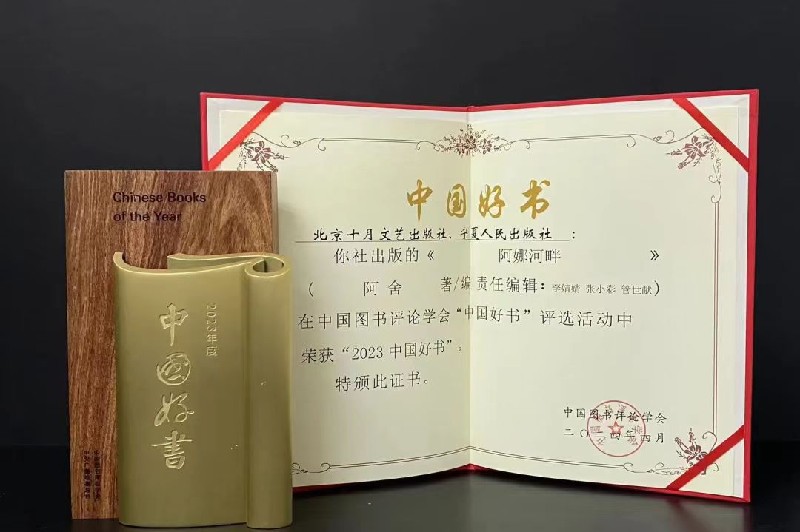 Chinese Books
of the Year
2023年度
中國好書
中国好书
北京十月文艺出版社、宁夏人民出版社 :
你社出版的《 阿娜河畔 》
( 阿舍 著/编 责任编辑: 李婧婧 张小彩 管世献)
在中国图书评论学会“中国好书”评选活动中
荣获“2023中国好书”。
特颁此证书。
中国图书评论学会
二〇二四年四月